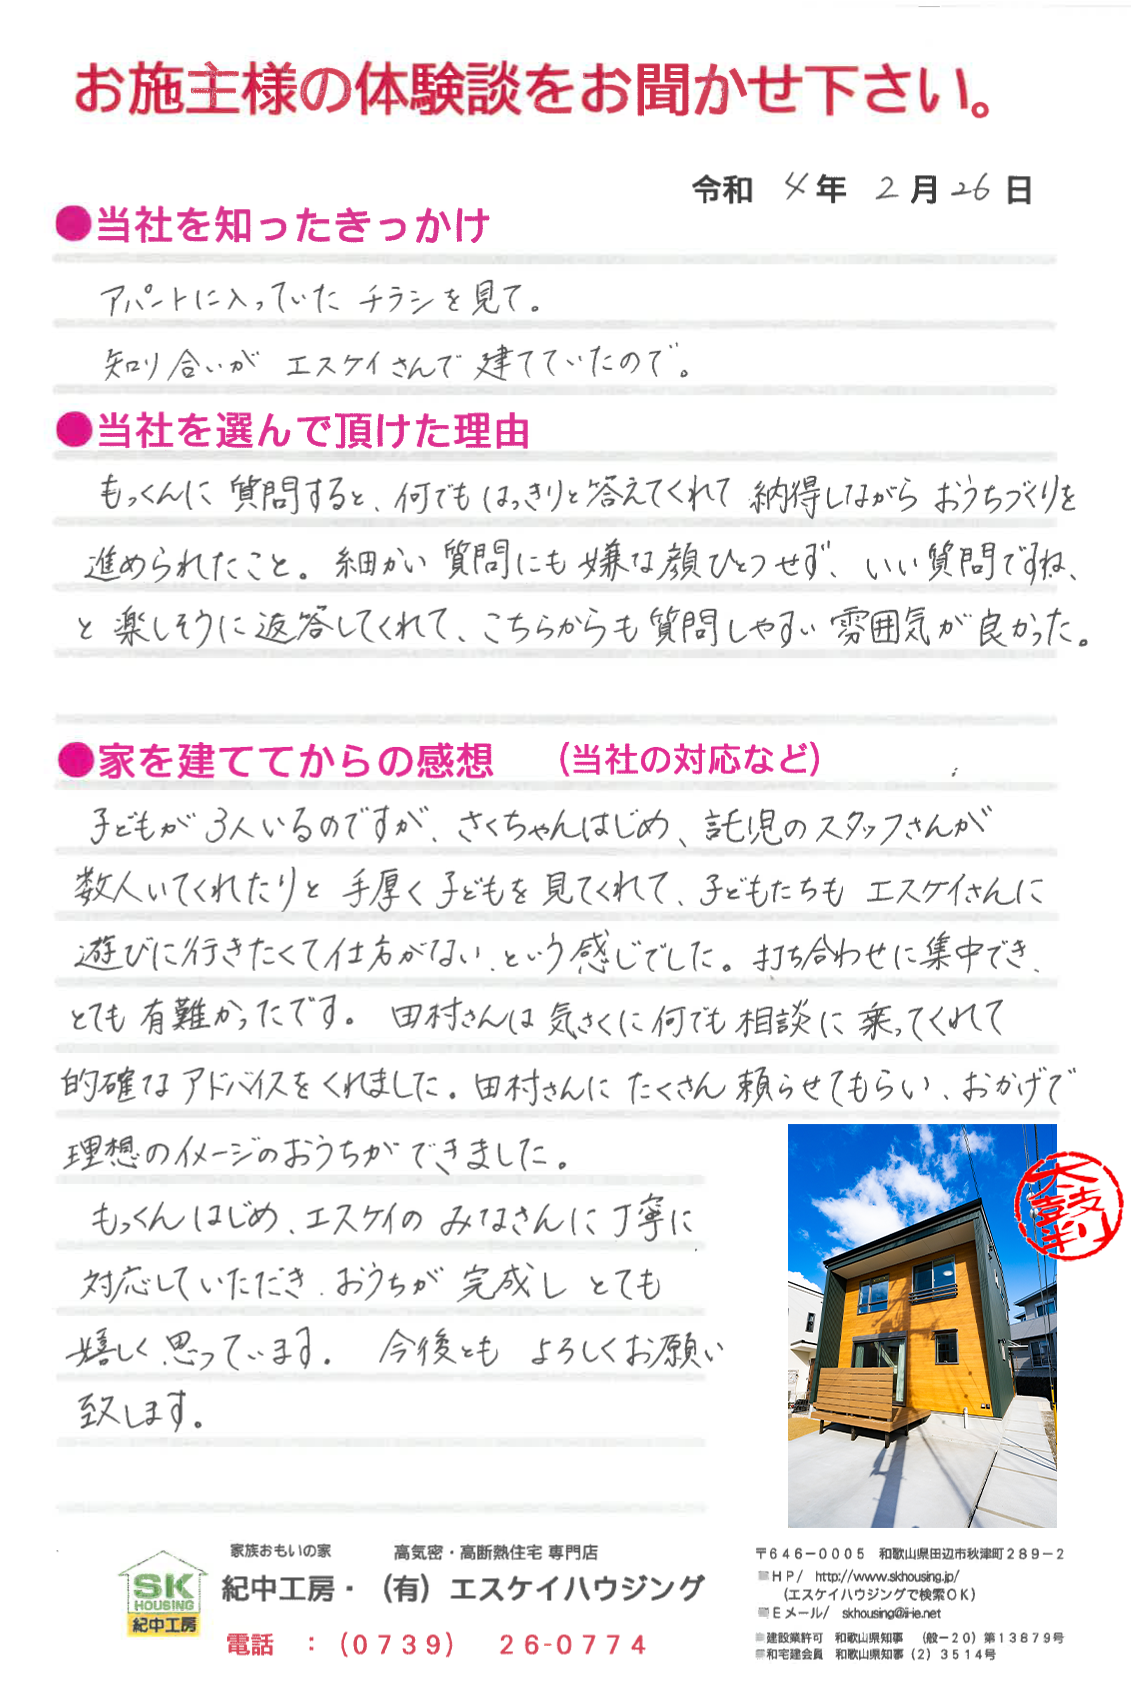 お施主様の体験談をお聞かせ下さい。
令和 4年 2月26日
●当社を知ったきっかけ
アパートに入っていた チラシを見て。
知り合いが エスケイさんで建てていたので。
●当社を選んで頂けた理由
もっくんに質問すると、何でもはっきりと答えてくれて 納得しながら おうちづくりを
進められたこと。細かい質問にも嫌な顔ひとつせず、いい質問ですね、
と楽しそうに返答してくれて、こちらからも質問しやすい雰囲気が良かった。
●家を建ててからの感想 （当社の対応など）
子どもが3人いるのですが、さくちゃんはじめ、託児のスタッフさんが
数人いてくれたりと 手厚く子どもを見てくれて、子どもたちも エスケイさんに
遊びに行きたくて仕方がない、という感じでした。打ち合わせに集中でき、
とても有難かったです。田村さんは気さくに何でも相談に乗ってくれて
的確なアドバイスをくれました。田村さんに たくさん頼らせてもらい、おかげで
理想のイメージのおうちができました。
もっくんはじめ、エスケイの みなさんに丁寧に
対応していただき、おうちが完成し とても
嬉しく思っています。 今後とも よろしくお願い
致します。
太鼓判
SK
HOUSING
紀中工房
家族おもいの家 高気密・高断熱住宅 専門店
紀中工房・（有）エスケイハウジング
電話 ：（０７３９） ２６-０７７４
〒６４６－０００５ 和歌山県田辺市秋津町２８９－２
ＨＰ/ http://www.skhousing.jp/
（エスケイハウジングで検索ＯＫ）
Ｅメール/ skhousing@iHe.net
建設業許可 和歌山県知事 （般－２０）第１３８７９号
和宅建会員 和歌山県知事（２）３５１４号